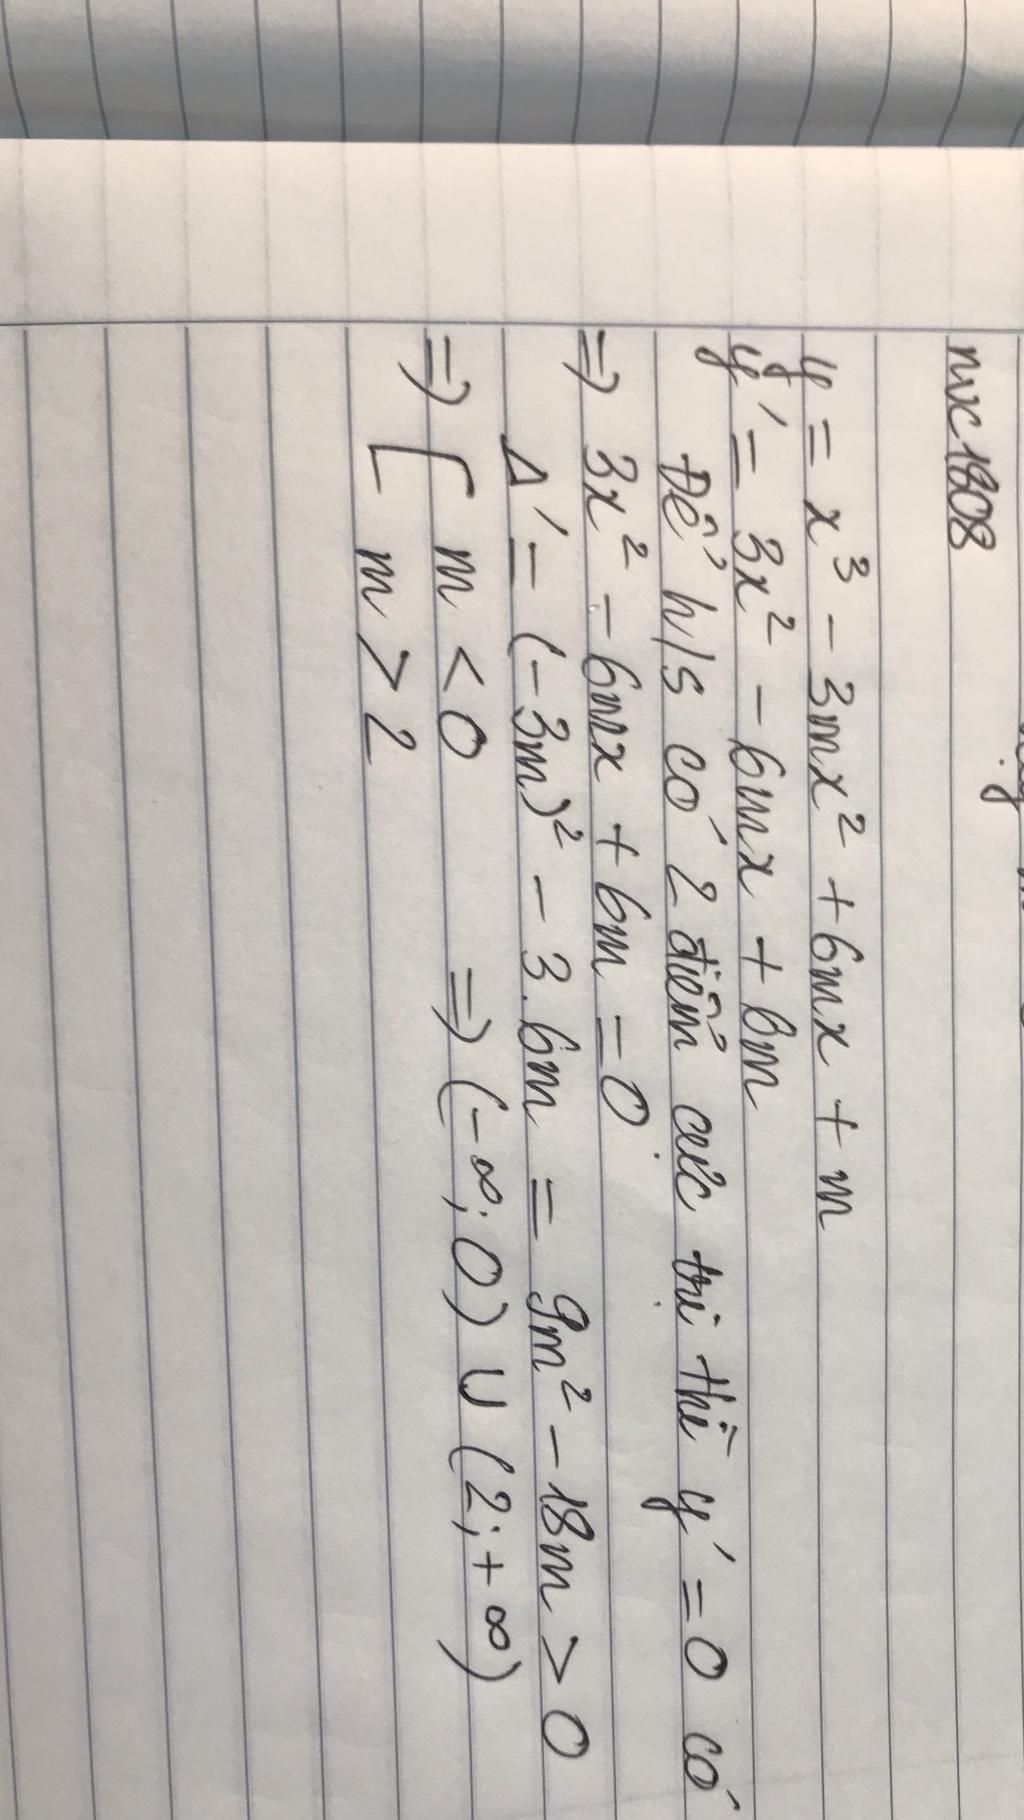 nvc1808
y = x³ - 3mx² + 6mx + m
y' = 3x² - 6mx + 6m
Để h/s có 2 điểm cực trị thì y' = 0 có
=> 3x² - 6mx + 6m = 0
Δ' = (-3m)² - 3.6m = 9m² - 18m > 0
=> [ m < 0 => (-∞; 0) ∪ (2; +∞)
m > 2